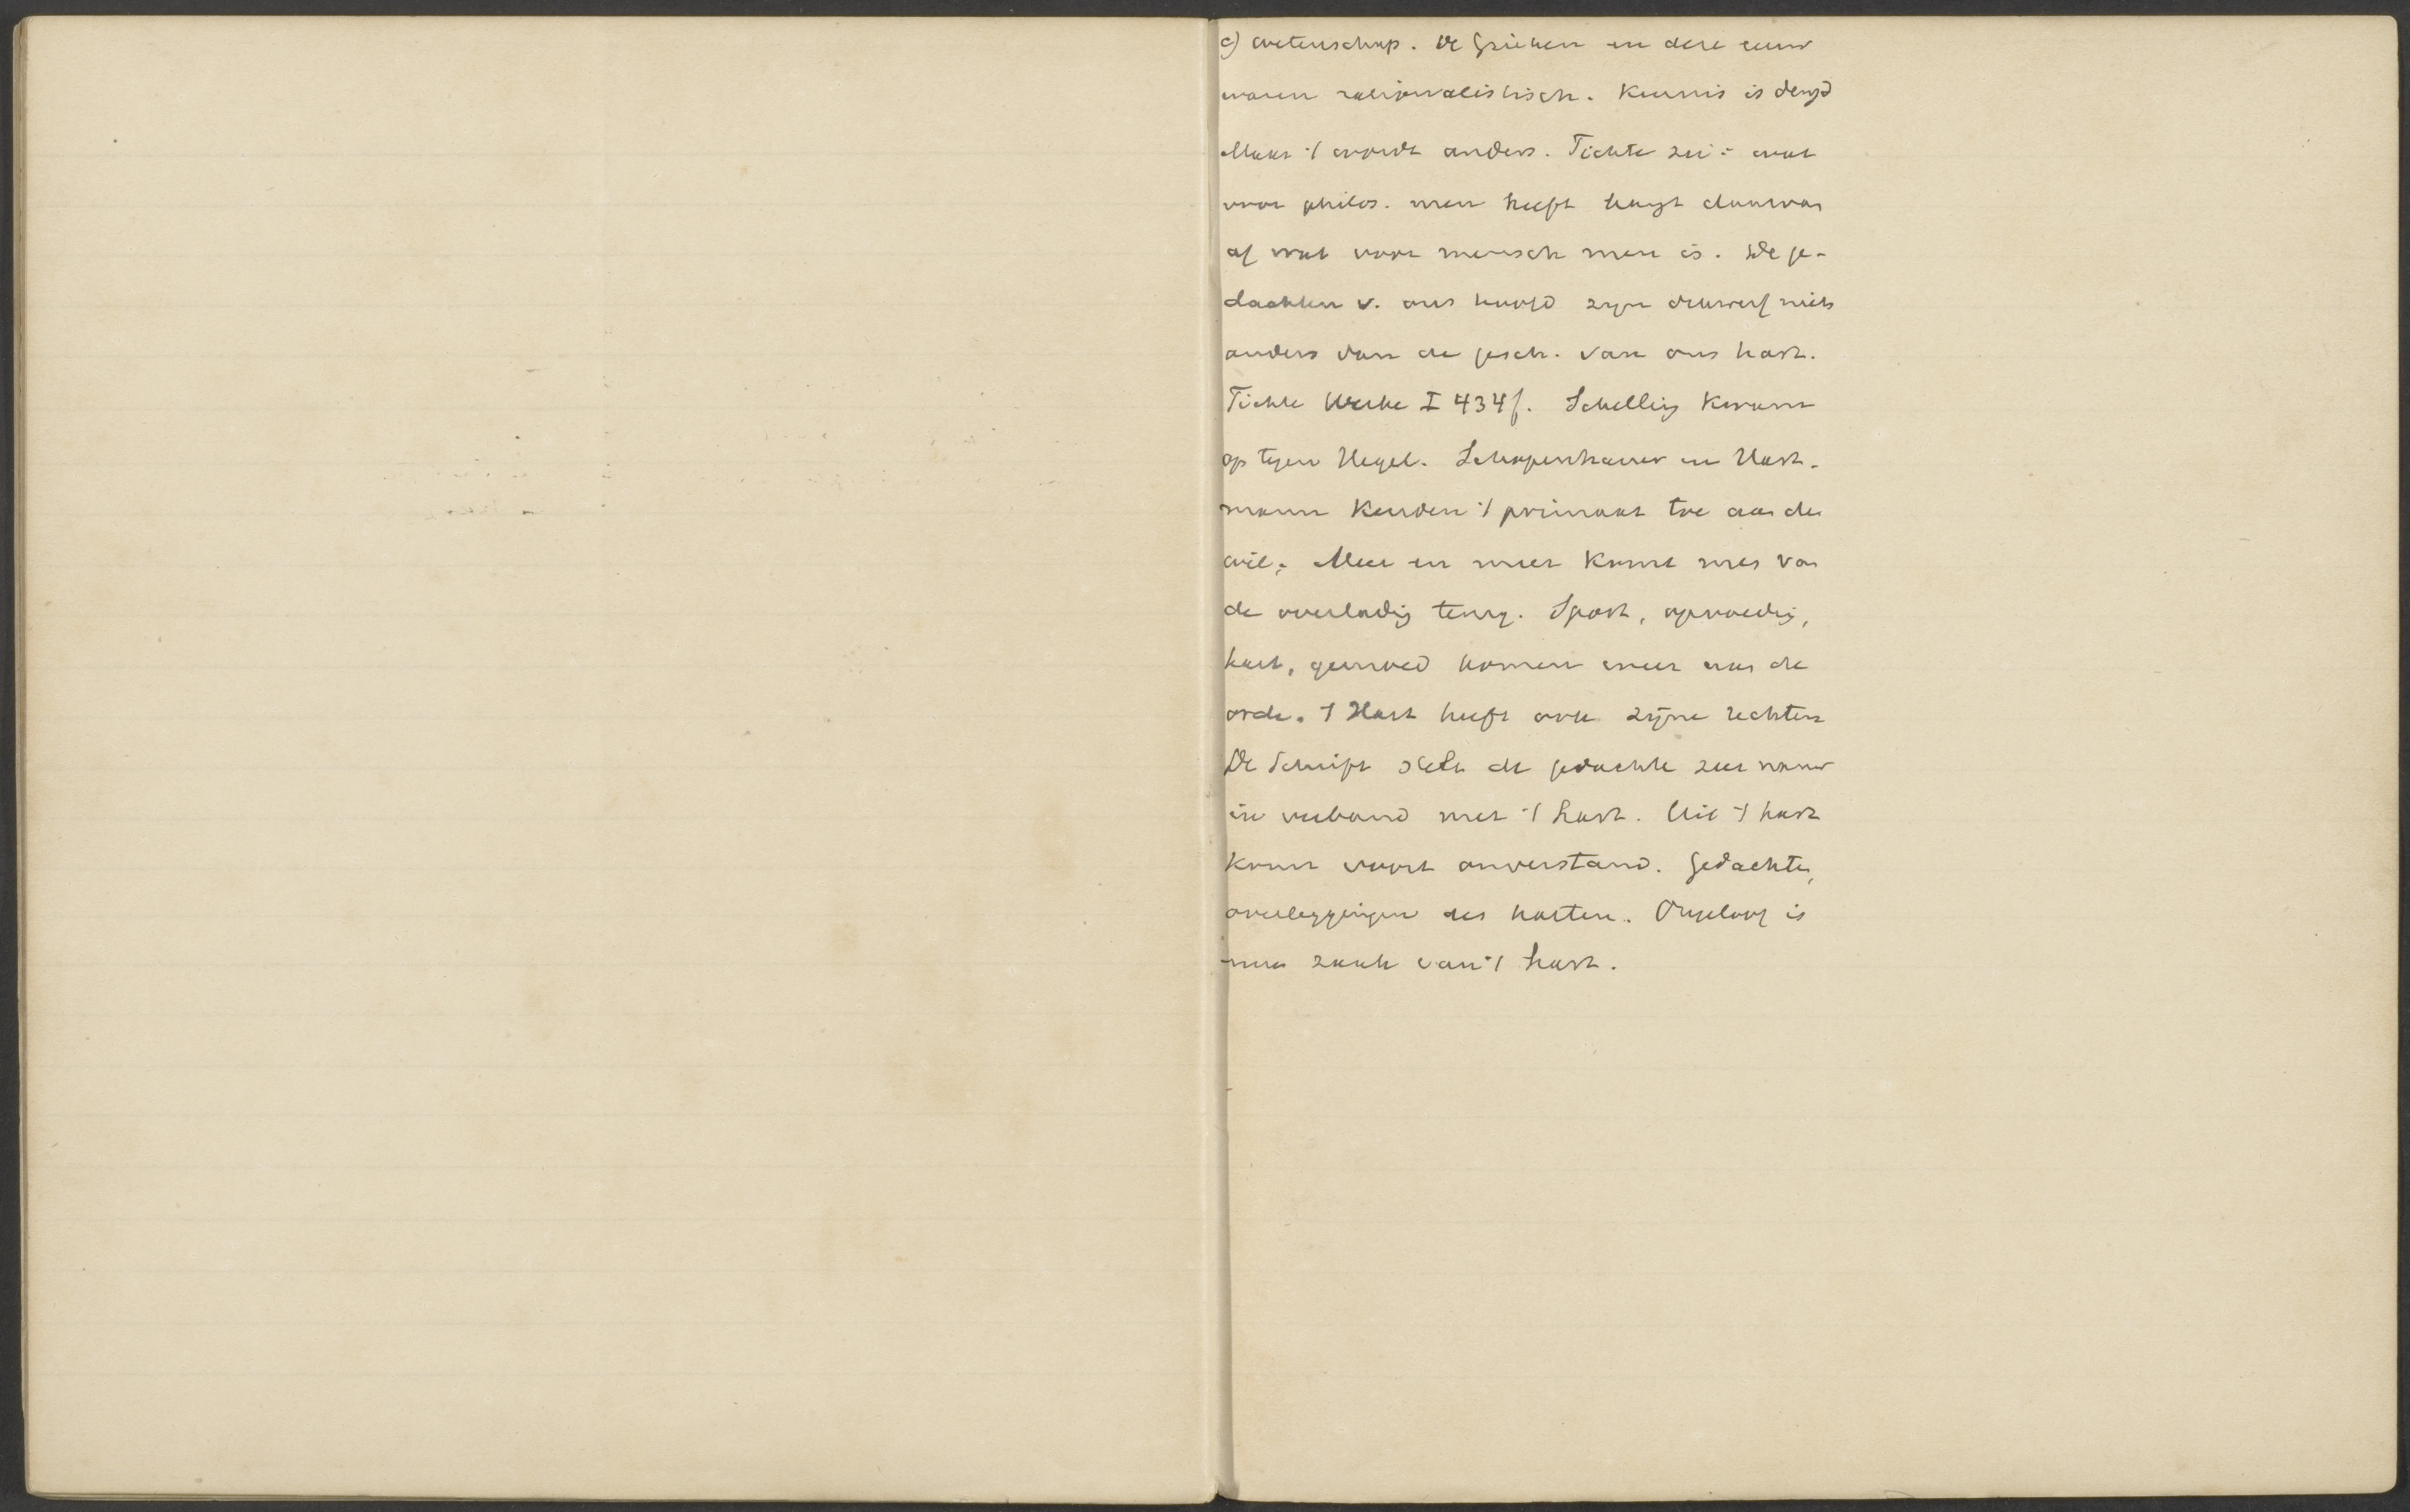 c) wetenschap. De Grieken en deze eeuw
waren rationalistisch. Kennis is deugd
Maar 't wordt anders. Fichte zei: wat
voor philos. men heeft hangt daarvan
af wat voor mensch men is. De ge-
dachten v. ons hoofd zijn dikwerf niets
anders dan de gesch. van ons hart.
Fichte Werke I 434f. Schelling kwam
op tegen Hegel. Schopenhauer en Hart-
mann kenden 't primaat toe aan den
wil. Meer en meer komt men van
de overlading terug. Sport, opvoeding,
hart, gemoed komen meer aan de
orde. 't Hart heeft ook zijne rechten
De Schrift stelt de gedachte zeer nauw
in verband met 't hart. Uit 't hart
komt voort onverstand. Gedachten,
overleggingen des harten. Ongeloof is
een zaak van 't hart.